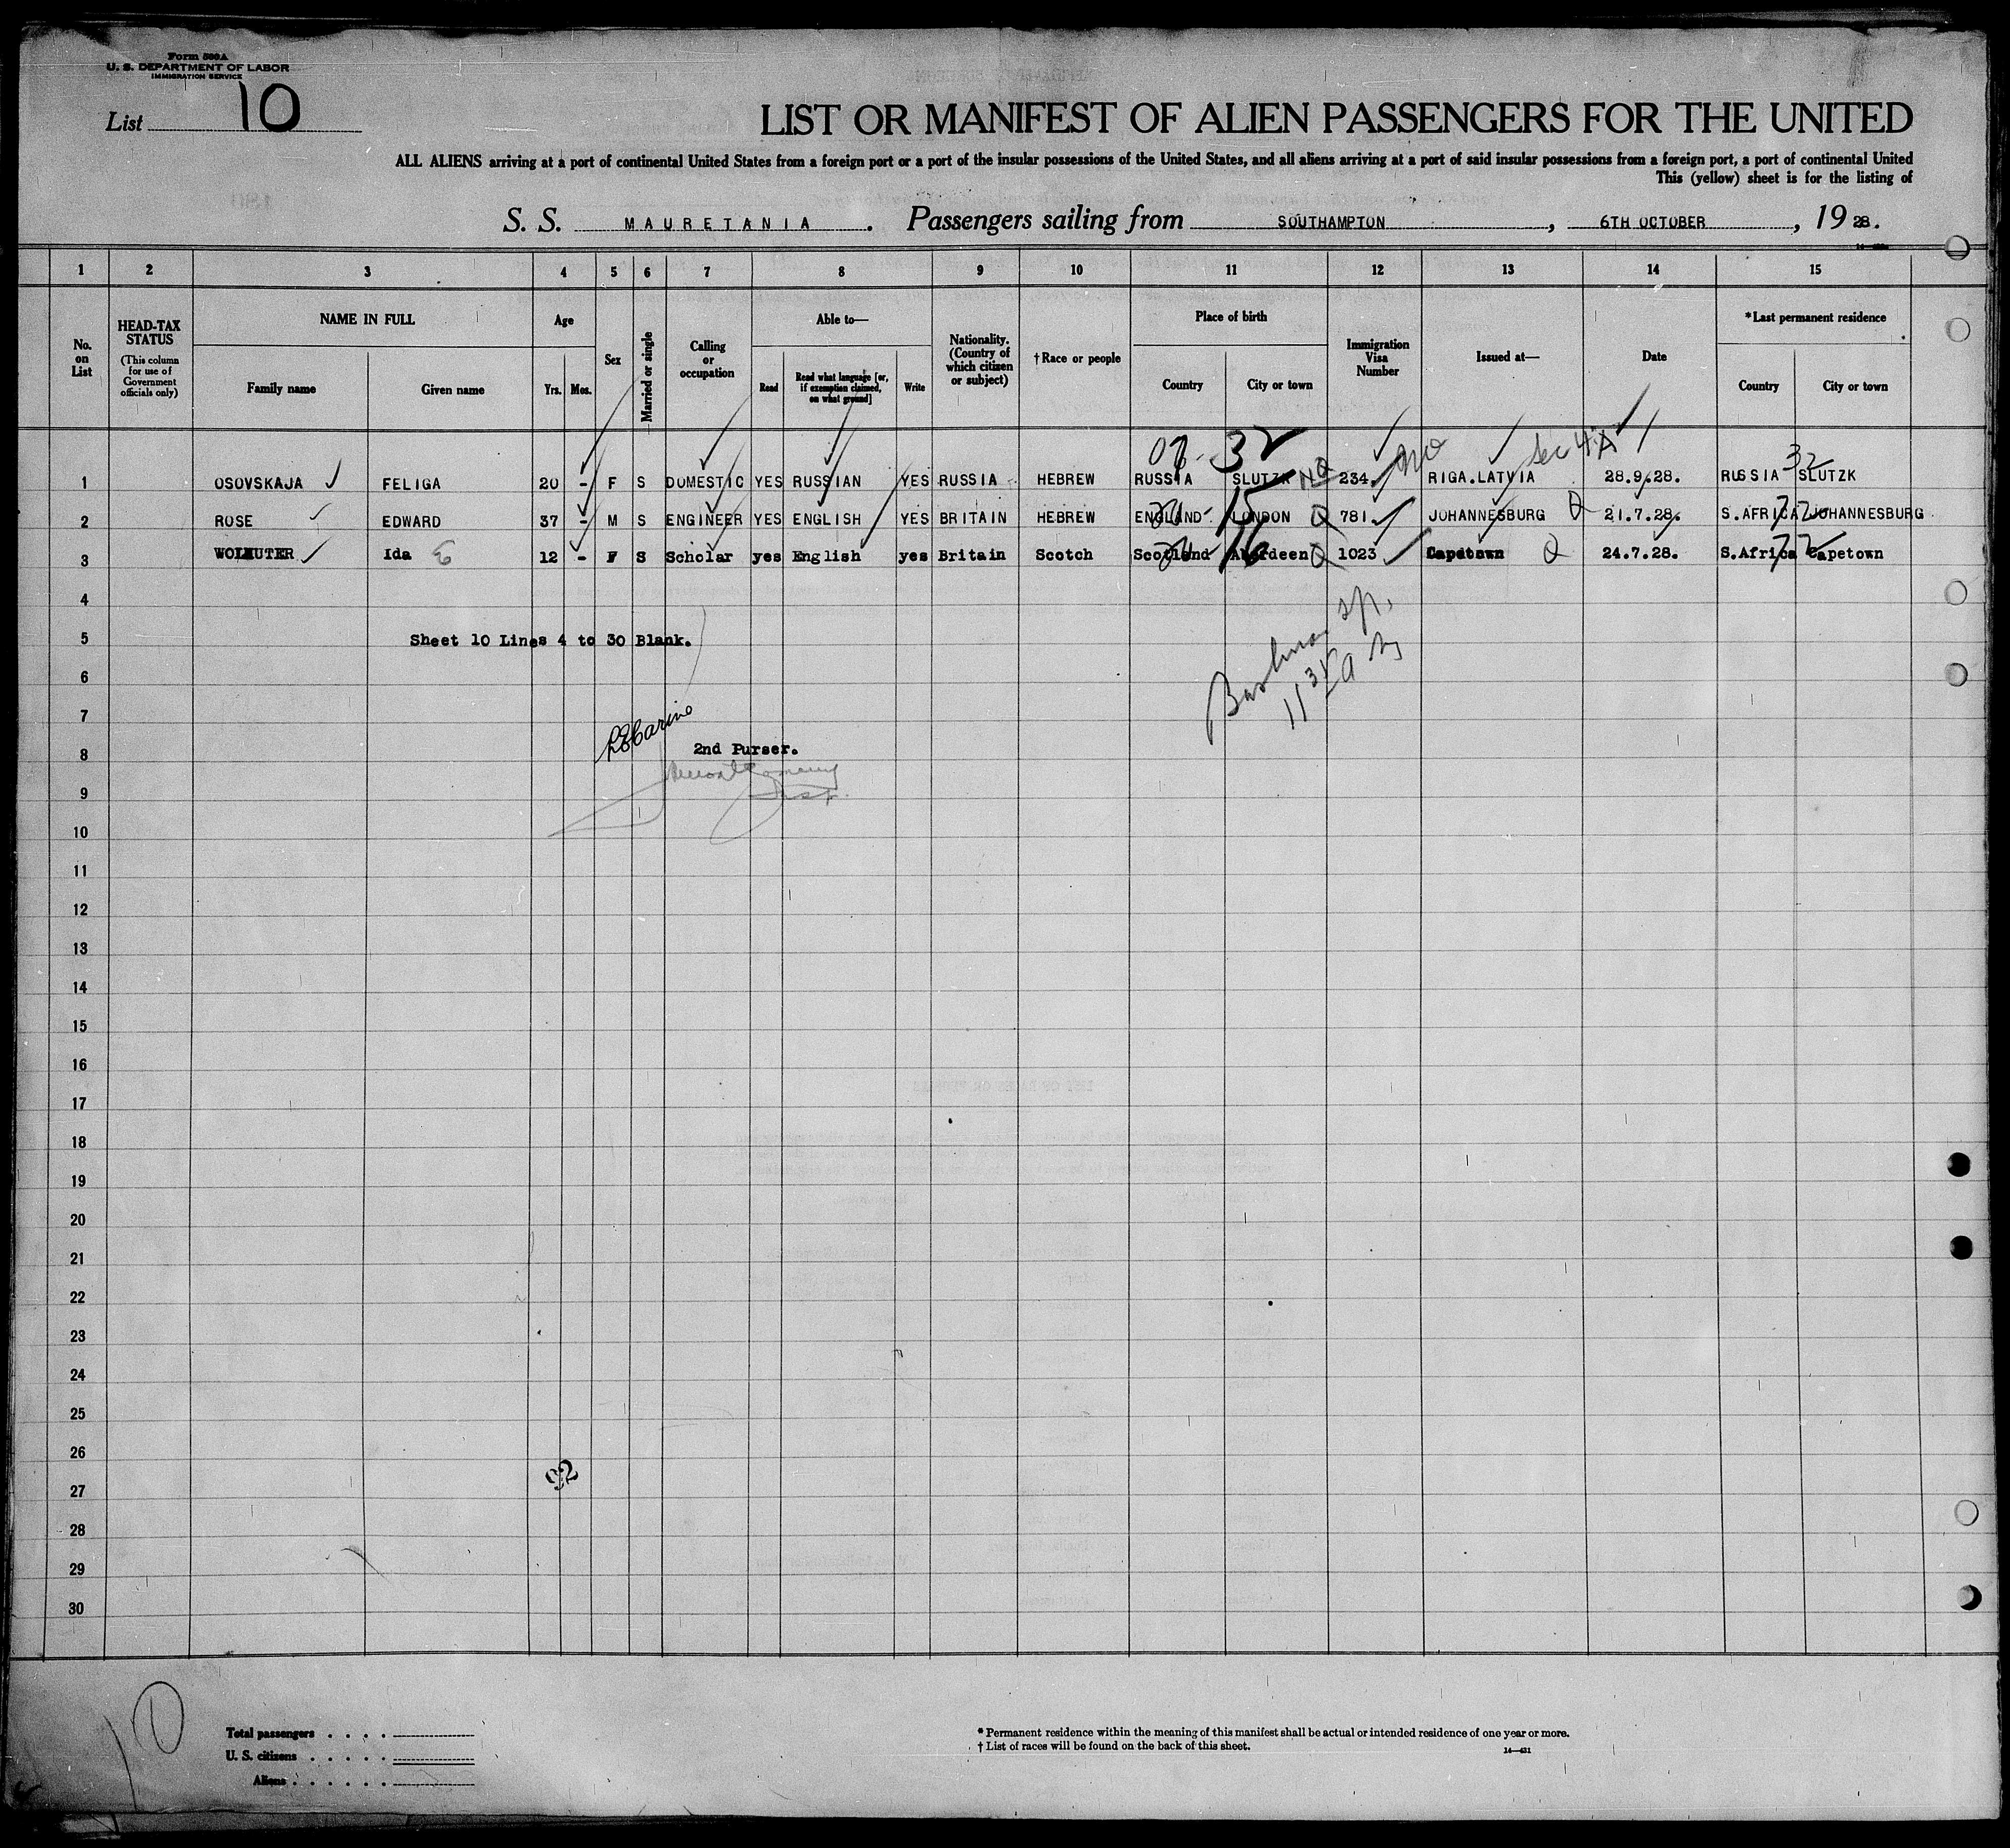 Form 500A
U. S. DEPARTMENT OF LABOR
IMMIGRATION SERVICE
List 10
LIST OR MANIFEST OF ALIEN PASSENGERS FOR THE UNITED
ALL ALIENS arriving at a port of continental United States from a foreign port or a port of the insular possessions of the United States, and all aliens arriving at a port of said insular possessions from a foreign port, a port of continental United
This (yellow) sheet is for the listing of
S. S. MAURETANIA. Passengers sailing from SOUTHAMPTON, 6TH OCTOBER, 1928.
1 2 3 4 5 6 7 8 9 10 11 12 13 14 15
No. on List
HEAD-TAX STATUS
(This column for use of Government officials only)
NAME IN FULL
Family name
Given name
Age
Yrs. Mos.
Sex
Married or single
Calling or occupation
Able to—
Read
Read what language [or, if exemption claimed, on what ground]
Write
Nationality. (Country of which citizen or subject)
†Race or people
Place of birth
Country
City or town
Immigration Visa Number
Issued at—
Date
*Last permanent residence
Country
City or town
32 Sec 4A
1 OSOVSKAJA FELIGA 20 - F S DOMESTIC YES RUSSIAN YES RUSSIA HEBREW RUSSIA SLUTZK NQ 234. RIGA.LATVIA 28.9.28. RUSSIA SLUTZK 32
2 ROSE EDWARD 37 - M S ENGINEER YES ENGLISH YES BRITAIN HEBREW ENGLAND 15 LONDON Q 781. JOHANNESBURG Q 21.7.28. S.AFRICA JOHANNESBURG 72
3 WOLMUTER Ida E 12 - F S Scholar yes English yes Britain Scotch Scotland 16 Aberdeen Q 1023 Capetown Q 24.7.28. S.Africa Capetown 72
4
5 Sheet 10 Lines 4 to 30 Blank.
6
7
8 2nd Purser.
9
10
11
12
13
14
15
16
17
18
19
20
21
22
23
24
25
26
27
28
29
30
92
10
Total passengers
U. S. citizens
Aliens
* Permanent residence within the meaning of this manifest shall be actual or intended residence of one year or more.
† List of races will be found on the back of this sheet.
14—431